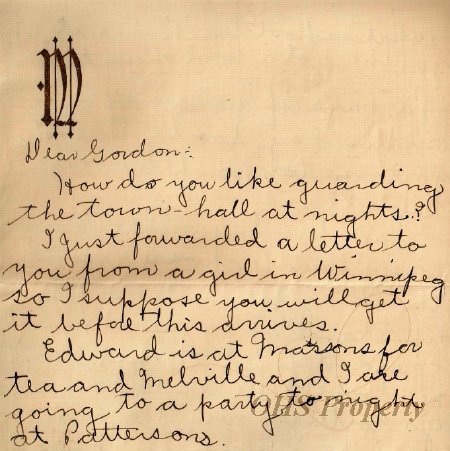 M
Dear Gordon:
How do you like guarding
the town-hall at nights?
I just forwarded a letter to
you from a girl in Winnipeg
so I suppose you will get
it before this arrives.
Edward is at Massons for
tea and Melville and I are
going to a party to night
at Pattersons.
OHS Property